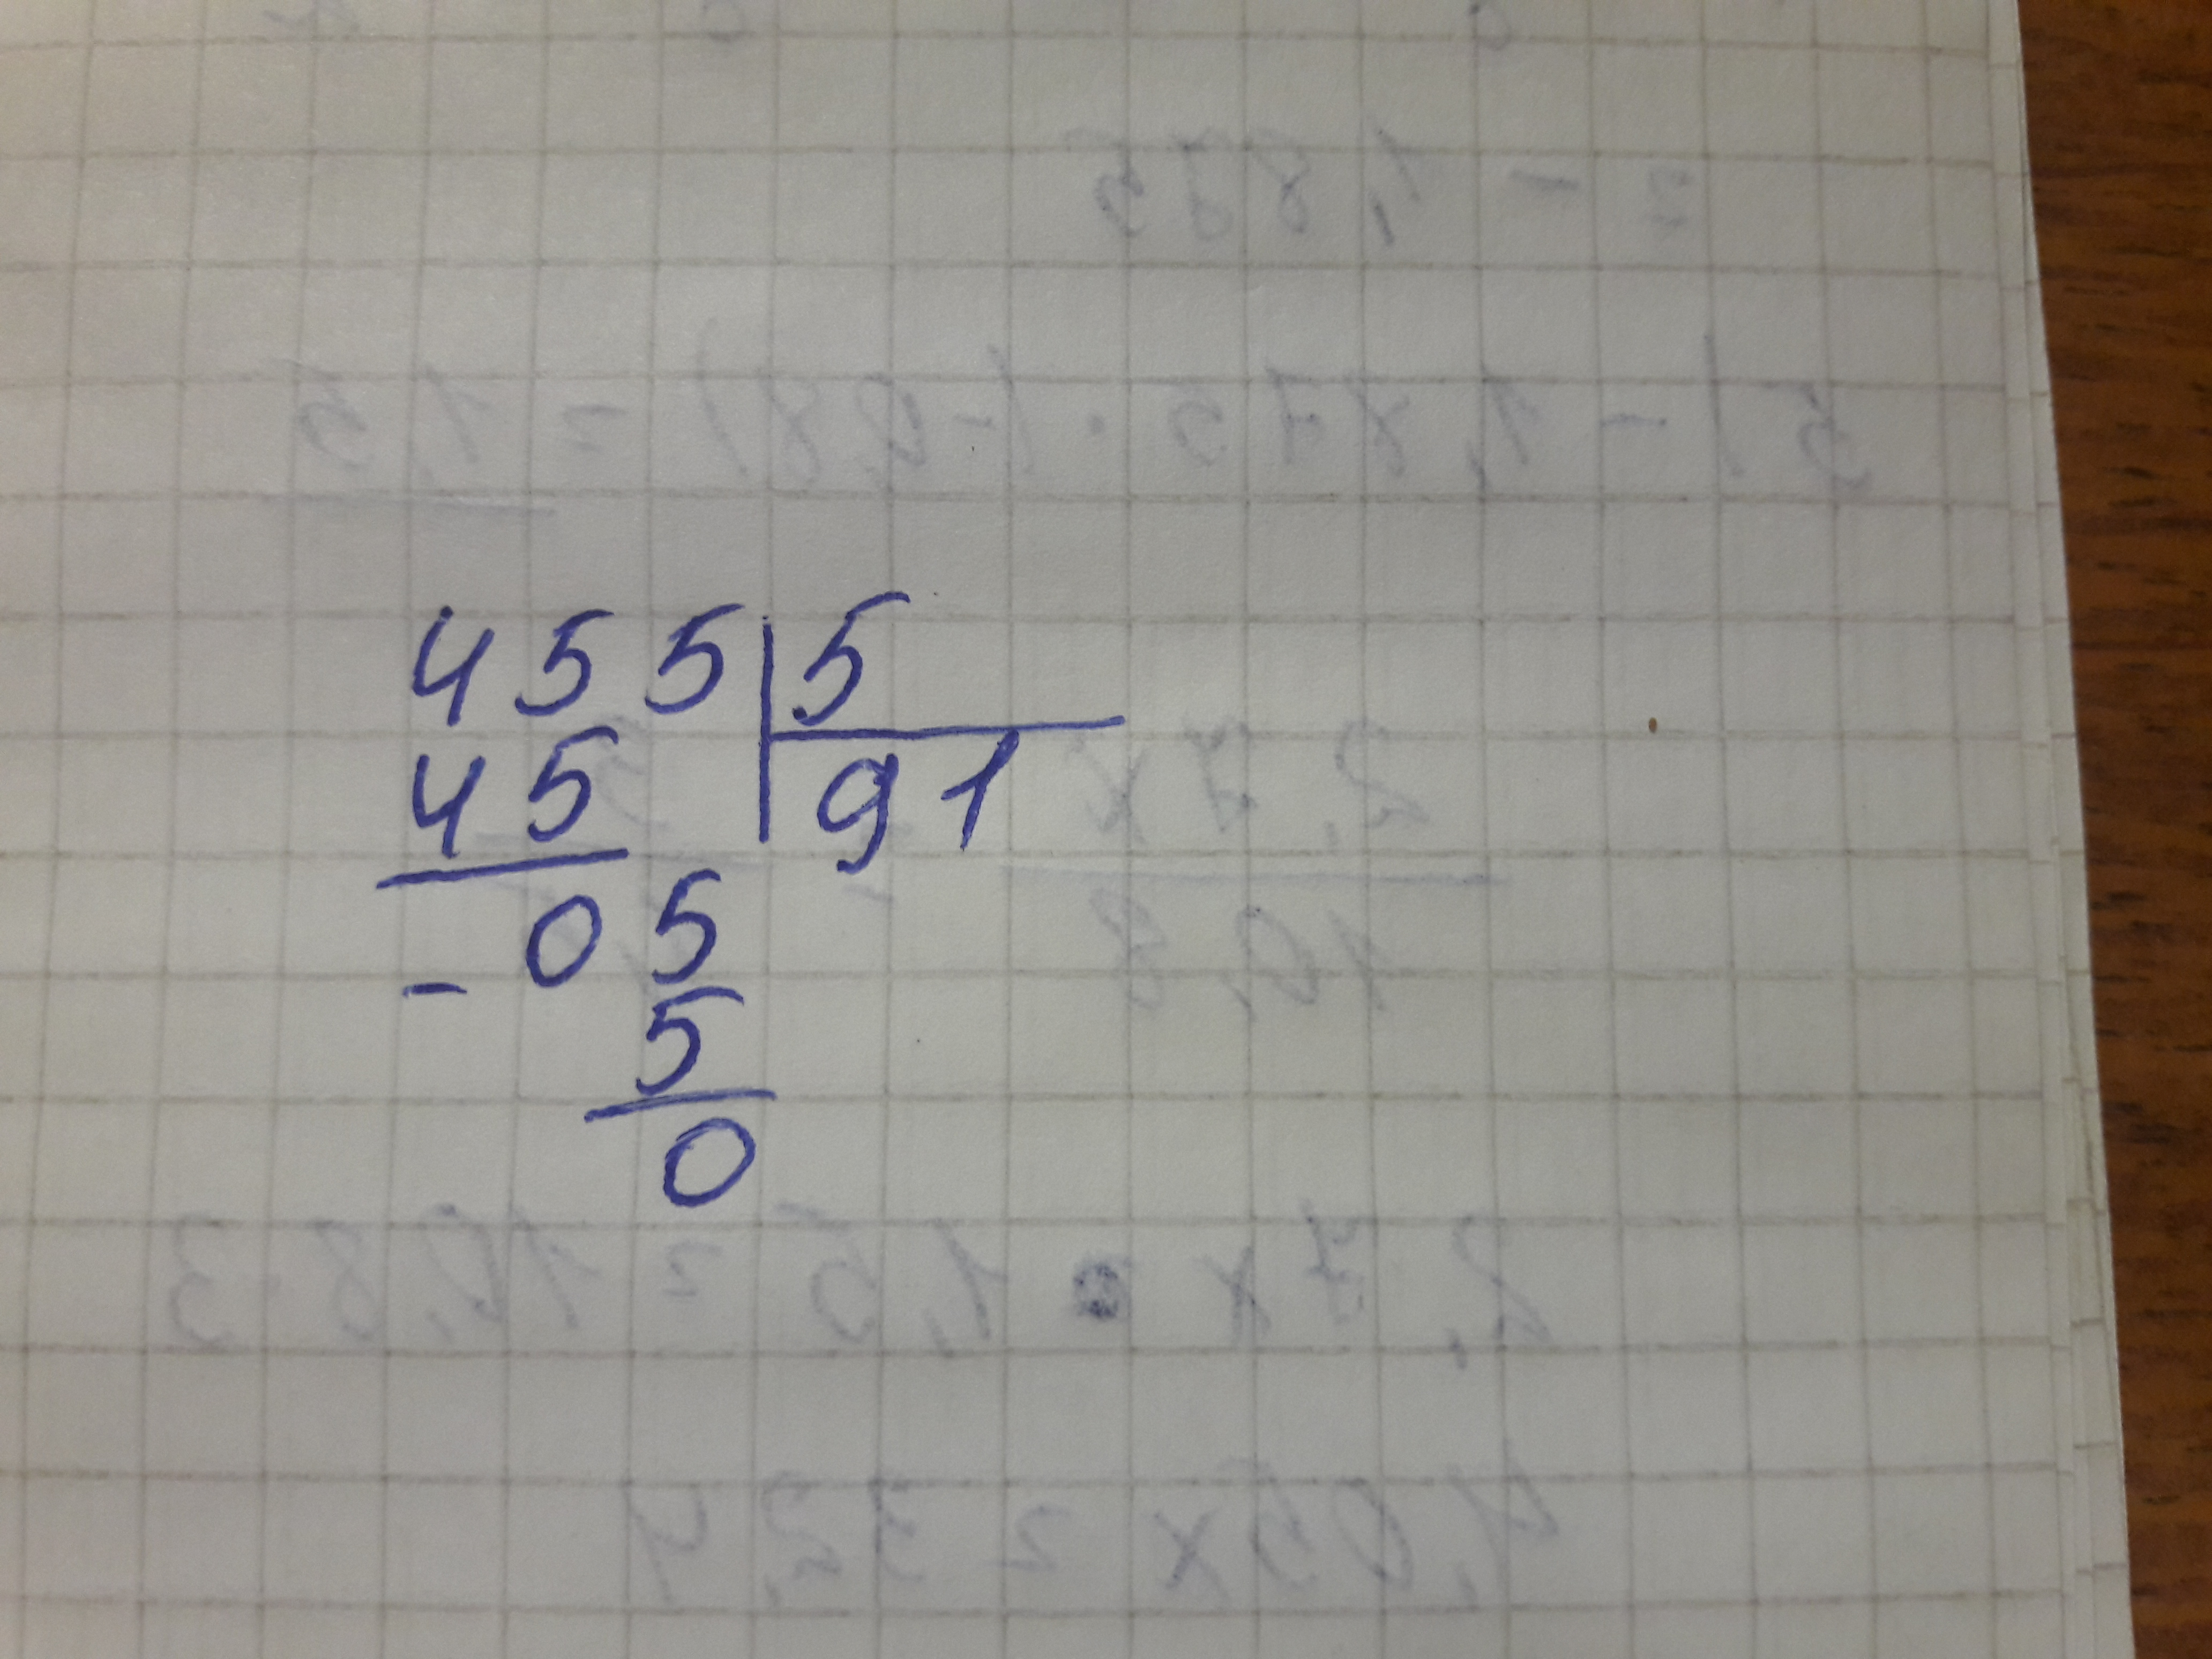 455|5
45 91
05
-
5
0